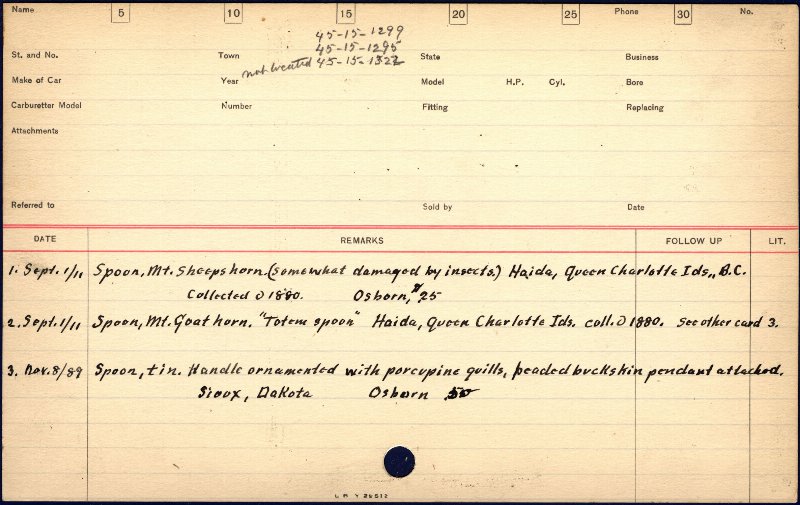 Name 5 10 15 20 25 Phone 30 No.
45-15-1299
45-15-1295
St. and No. Town State Business
not located 45-15-1322
Make of Car Year Model H.P. Cyl. Bore
Carburetter Model Number Fitting Replacing
Attachments
Referred to Sold by Date
DATE REMARKS FOLLOW UP LIT.
1. Sept. 1/11 Spoon, Mt. Sheeps horn. (somewhat damaged by insects.) Haida, Queen Charlotte Ids., B.C.
Collected 1880. Osborn, #25
2. Sept. 1/11 Spoon, Mt. Goat horn. "Totem spoon" Haida, Queen Charlotte Ids. coll. 1880. See other card 3.
3. Nov. 8/89 Spoon, tin. Handle ornamented with porcupine quills, beaded buckskin pendant attached.
Sioux, Dakota Osborn 50